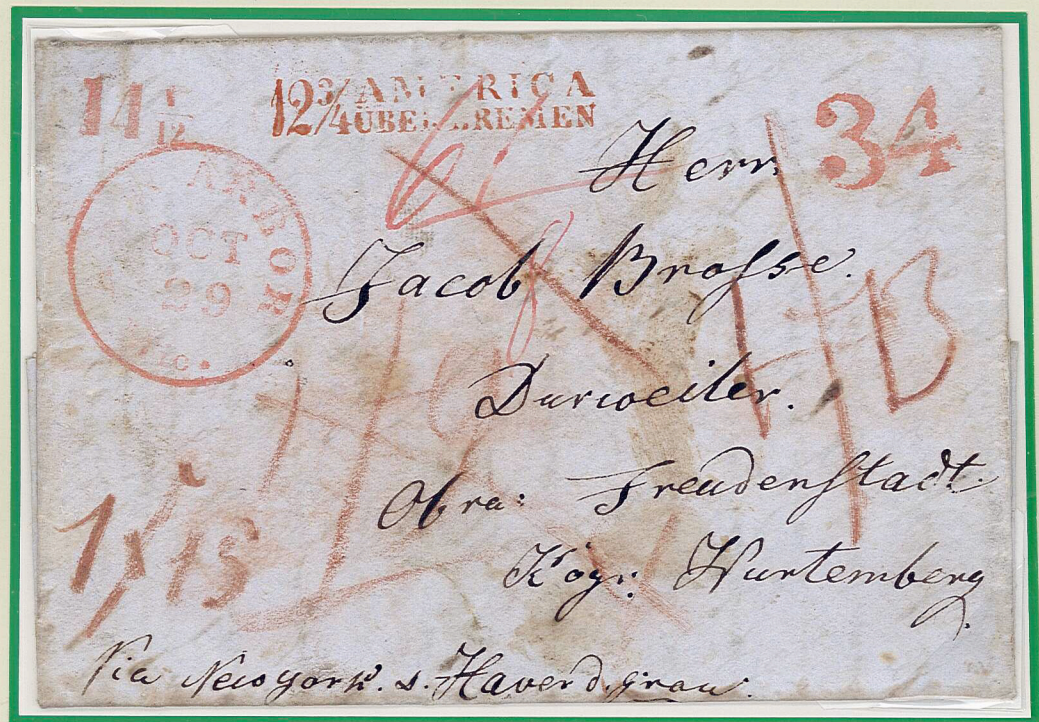 14 1/12
12 3/4 AMERICA
ÜBER BREMEN
34
ARBOR
OCT
29
Herr
Jacob Brosse.
Durweiler.
Obra: Freudenstadt.
Kögr: Wurtemberg
Via New york. s. Haver d. grau.